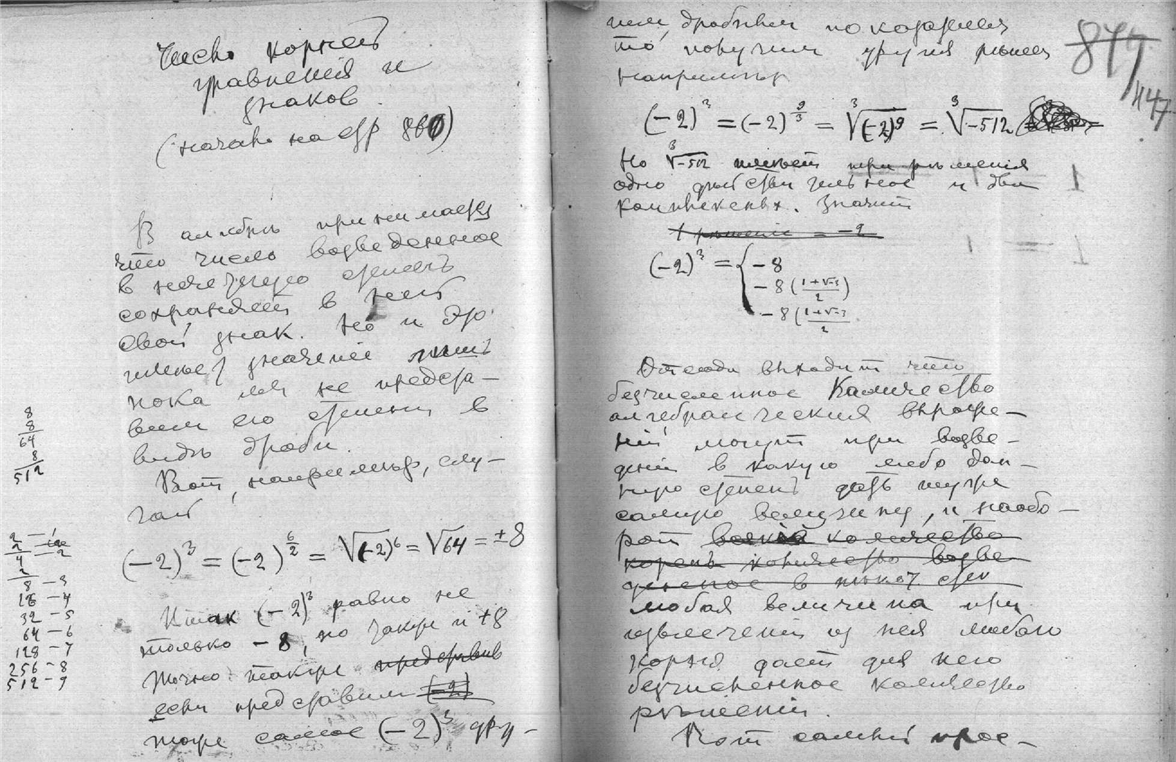 Число корней
уравнения и
знаков
(начало на стр 860)
В алгебрѣ принимают
что число возведенное
в нечетную степень
сохраняет в ней
свой знак. Но и
значений лишь
пока мы не предста-
вим его степени в
видѣ дроби.
Вот, напримѣр, слу-
чай
(-2)³ = (-2)^{6/2} = √(-2)⁶ = √64 = ±8
Итак (-2)³ равно не
только -8, но также и +8
Точно также представив
если представим (-2)
тоже самое (-2)³ дру-
8
8
64
8
512
2 - 1
2
4 - 2
2
8 - 3
16 - 4
32 - 5
64 - 6
128 - 7
256 - 8
512 - 9
гим дробным показателем
то получим другия рѣшен
напримѣр
(-2)³ = (-2)^{9/3} = ∛(-2)⁹ = ∛-512
Но ∛-512 имѣет три рѣшения
одно дѣйствительное и два
комплексных. Значит
1 рѣшение = -2
(-2)³ = { -8
-8 (1+√-3)/2
-8 (1+√-3)/2
Отсюда выходит что
безчисленное Количество
алгебраических выраже-
ний могут при возве-
дении в какую либо дан-
ную степень дать ту же
самую величину, и наобо-
рот всякий количество
корень количество возве
денное в степ
любая величина при
извлечении из нея любого
корня дает для него
безчисленное количество
рѣшений.
Вот самый прос-
879
447